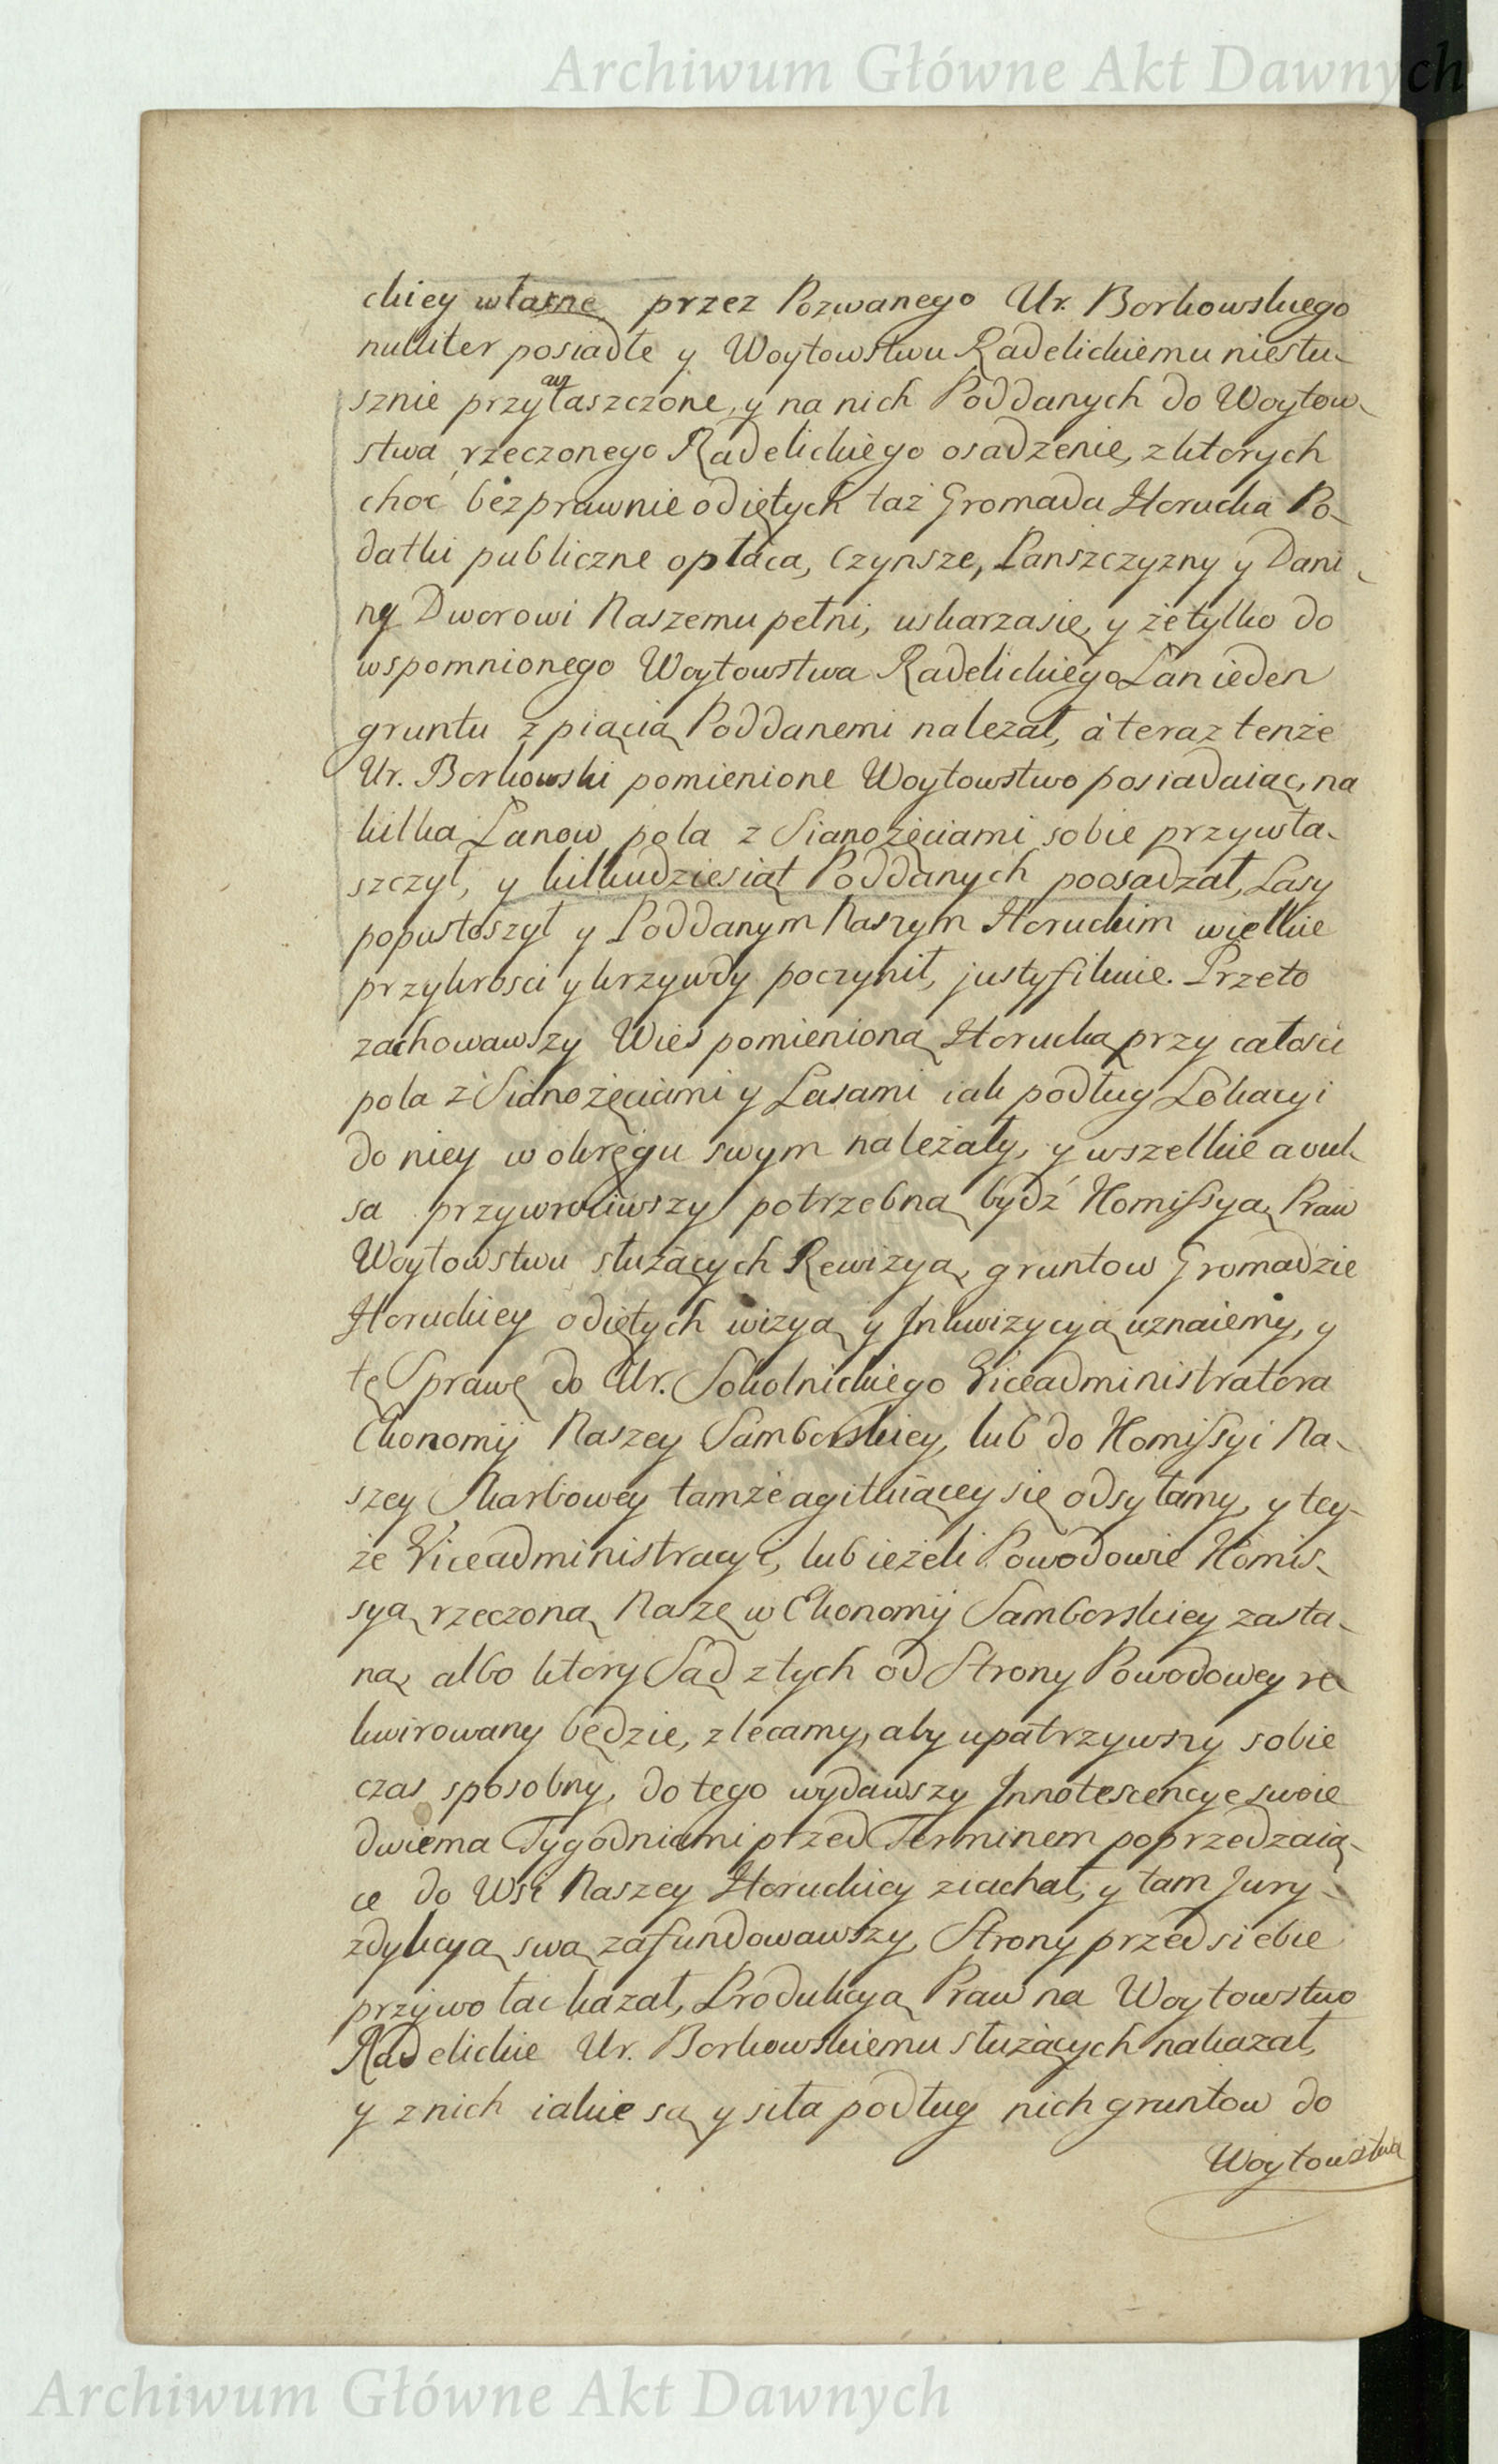 Archiwum Główne Akt Dawnych
ckiey własne przez Pozwanego Ur. Borkowskiego
nulliter posiadłe y Woytowstwu Radelickiemu niesłu-
sznie przywłaszczone, y na nich Poddanych do Woytow-
stwa rzeczonego Radelickiego osadzenie, z ktorych
choć bezprawnie odiętych taż Gromada Horucka Po-
datki publiczne opłaca, Czynsze, Panszczyzny y Dani-
ny Dworowi Naszemu pełni, uskarza się, y że tylko do
wspomnionego Woytowstwa Radelickiego Łan ieden
gruntu z piącią Poddanemi należał, a teraz tenże
Ur. Borkowski pomienione Woytowstwo posiadaiąc, na
kilka Łanow pola z Sianożęciami sobie przywła-
szczył, y kilkudziesiąt Poddanych poosadzał, Lasy
popustoszył y Poddanym Naszym Horuckim wielkie
przykrosci y krzywdy poczynił, justyfikuie. Przeto
zachowawszy Wieś pomienioną Horucką przy całości
pola z Sianożęciami y Lasami iak podług Lokacyi
do niey w okręgu swym należały, y wszelkie avul-
sa przywrociwszy potrzebną bydź Kommissyą, Praw
Woytowstwu służących Rewizyą, gruntow Gromadzie
Horuckiey odiętych wizyą y Inkwizycyą uznaiemy, y
tę Sprawę do Ur. Sokolnickiego Viceadministratora
Ekonomij Naszey Samborskiey, lub do Komissyi Na-
szey Skarbowey tamże agituiącey się odsyłamy, y tey-
że Viceadministracyi, lub ieżeli Powodowie Komis-
syą rzeczoną Naszę w Ekonomij Samborskiey zasta-
ną, albo ktory Sąd z tych od Strony Powodowey re-
kwirowany będzie, zlecamy, aby upatrzywszy sobie
czas sposobny, do tego wydawszy Innotescencye swoie
dwiema Tygodniami przed Terminem poprzedzaią-
ce do Wsi Naszey Horuckiey ziachał, y tam Jury-
zdykcyą swą zafundowawszy, Strony przed siebie
przywołać kazał, Produkcyą Praw na Woytowstwo
Radelickie Ur. Borkowskiemu służących nakazał,
y z nich iakie są y siła podług nich gruntow do
Woytowstwa
Archiwum Główne Akt Dawnych